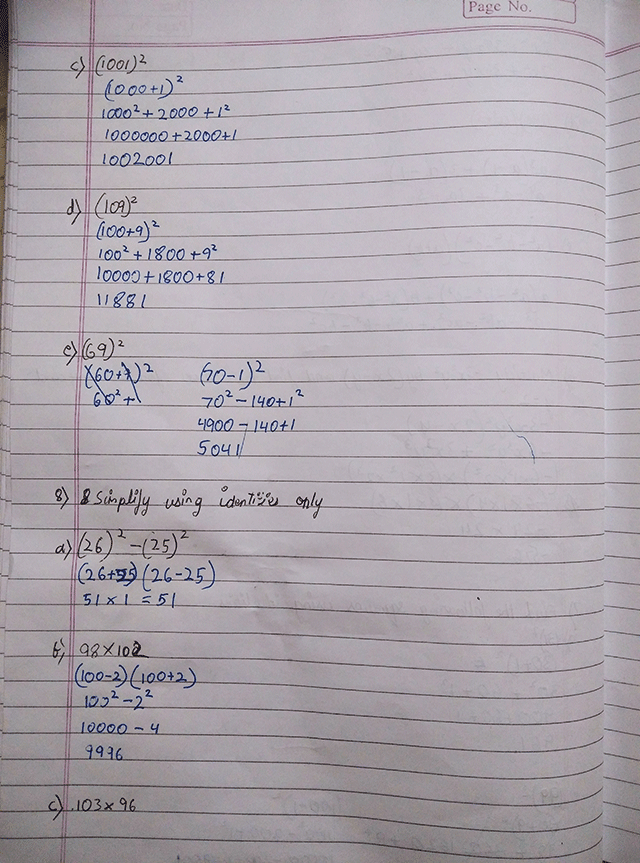 Page No.
c) (1001)²
(1000+1)²
1000² + 2000 + 1²
1000000 + 2000 + 1
1002001
d) (109)²
(100+9)²
100² + 1800 + 9²
10000 + 1800 + 81
11881
e) (69)²
(70-1)²
60² +
70² - 140 + 1²
4900 - 140 + 1
5041
8) Simplify using identities only
a) (26)² - (25)²
(26+25) (26-25)
51 × 1 = 51
b) 98 × 102
(100-2) (100+2)
100² - 2²
10000 - 4
9996
c) 103 × 96